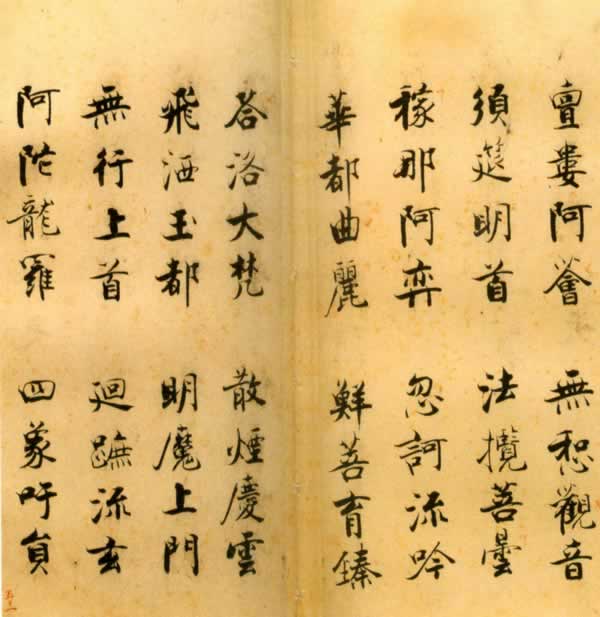 亶婁阿薈 無惒觀音
須筵明首 法攬菩曇
稼那阿弈 忽訶流吟
華都曲麗 鮮菩育臻
荅洛大梵 散煙慶雲
飛洒玉都 明魔上門
無行上首 廻蹠流玄
阿陁龍羅 四象吁員